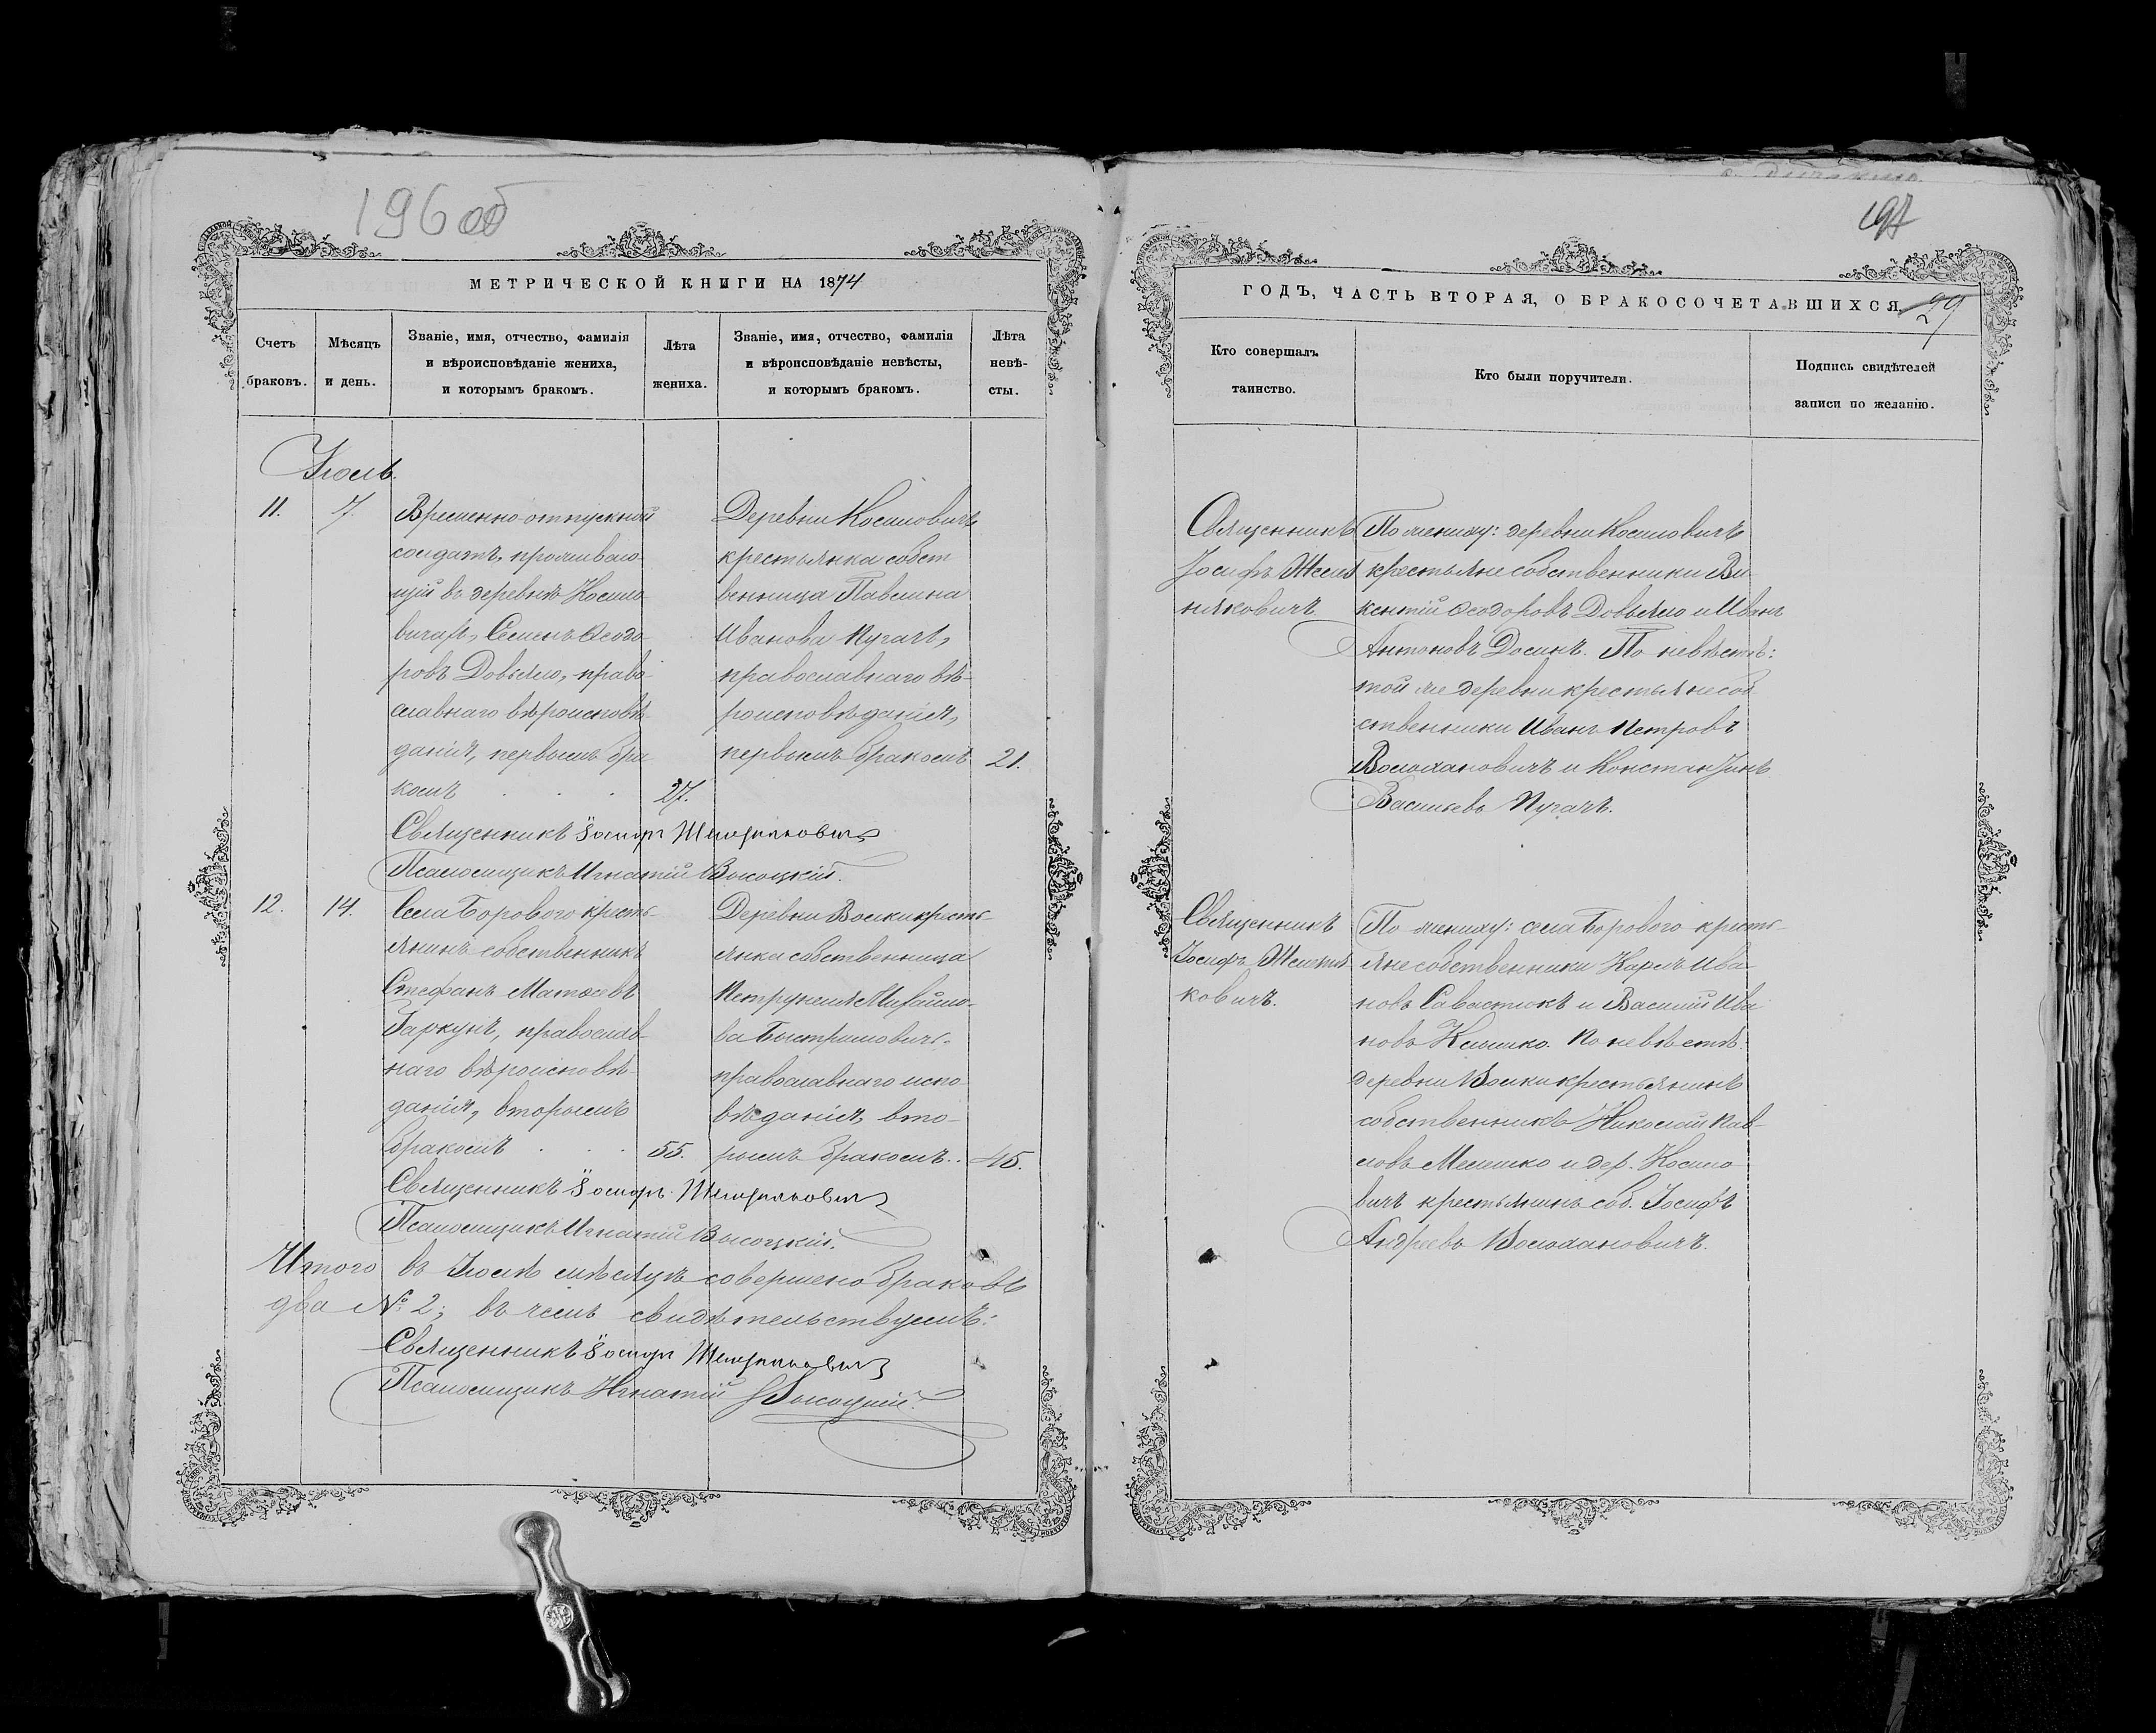 196 об
МЕТРИЧЕСКОЙ КНИГИ НА 1874
Счетъ браковъ.
Мѣсяцъ и день.
Званіе, имя, отчество, фамилія
и вѣроисповѣданіе жениха,
и которымъ бракомъ.
Лѣта жениха.
Званіе, имя, отчество, фамилія
и вѣроисповѣданіе невѣсты,
и которымъ бракомъ.
Лѣта невѣ-
сты.
Іюль.
11.
7.
Временно-отпускной
солдатъ, проживаю-
щій въ деревнѣ Косило-
вичахъ, Семенъ Ѳеодо-
ровъ Довьяло, право-
славнаго вѣроисповѣ-
данія, первымъ бра
комъ . . .
27.
Деревни Косиловичъ
крестьянка собст
венница Павлина
Иванова Пугачъ,
православнаго вѣ-
роисповѣданія,
первымъ бракомъ
21.
Священникъ Іосифъ
Псаломщикъ Игнатій Высоцкій.
12.
14.
Села Борового кресть-
янинъ собственникъ
Стефанъ Матѳеевъ
Гаркунъ, православ-
наго вѣроисповѣ-
данія, вторымъ
бракомъ . . .
55.
Деревни Волки кресть-
янка собственница
Петрунеля Михайло-
ва Быстримовичъ.
православнаго испо
вѣданія, вто-
рымъ бракомъ..
45.
Священникъ Іосифъ
Псаломщикъ Игнатій Высоцкій.
Итого въ Іюлѣ мѣсяцѣ совершено браковъ
два № 2; въ чемъ свидѣтельствуемъ:
Священникъ Іосифъ
Псаломщикъ Игнатій Высоцкій.
197
ГОДЪ, ЧАСТЬ ВТОРАЯ, О БРАКОСОЧЕТАВШИХСЯ.
29
Кто совершалъ
таинство.
Кто были поручители.
Подпись свидѣтелей
записи по желанію.
Священникъ
Іосифъ
По женихѣ: деревни Косиловичъ
крестьяне собственники Ви
кентій Ѳеодоровъ Довьяло и Иванъ
Антоновъ Досинъ. По невѣстѣ:
той же деревни крестьяне соб
ственники Иванъ Петровъ
Воложановичъ и Константинъ
Васильевъ Пугачъ.
Священникъ
Іосифъ
По женихѣ: села Борового кресть-
яне собственники Карлъ Ива
новъ Савастюкъ и Василій Ива
новъ Климко. По невѣстѣ:
деревни Волки крестьянинъ
собственникъ Николай Пав-
ловъ Мелешко и дер. Косило
вичъ крестьянинъ соб. Іосифъ
Андреевъ Воложановичъ.